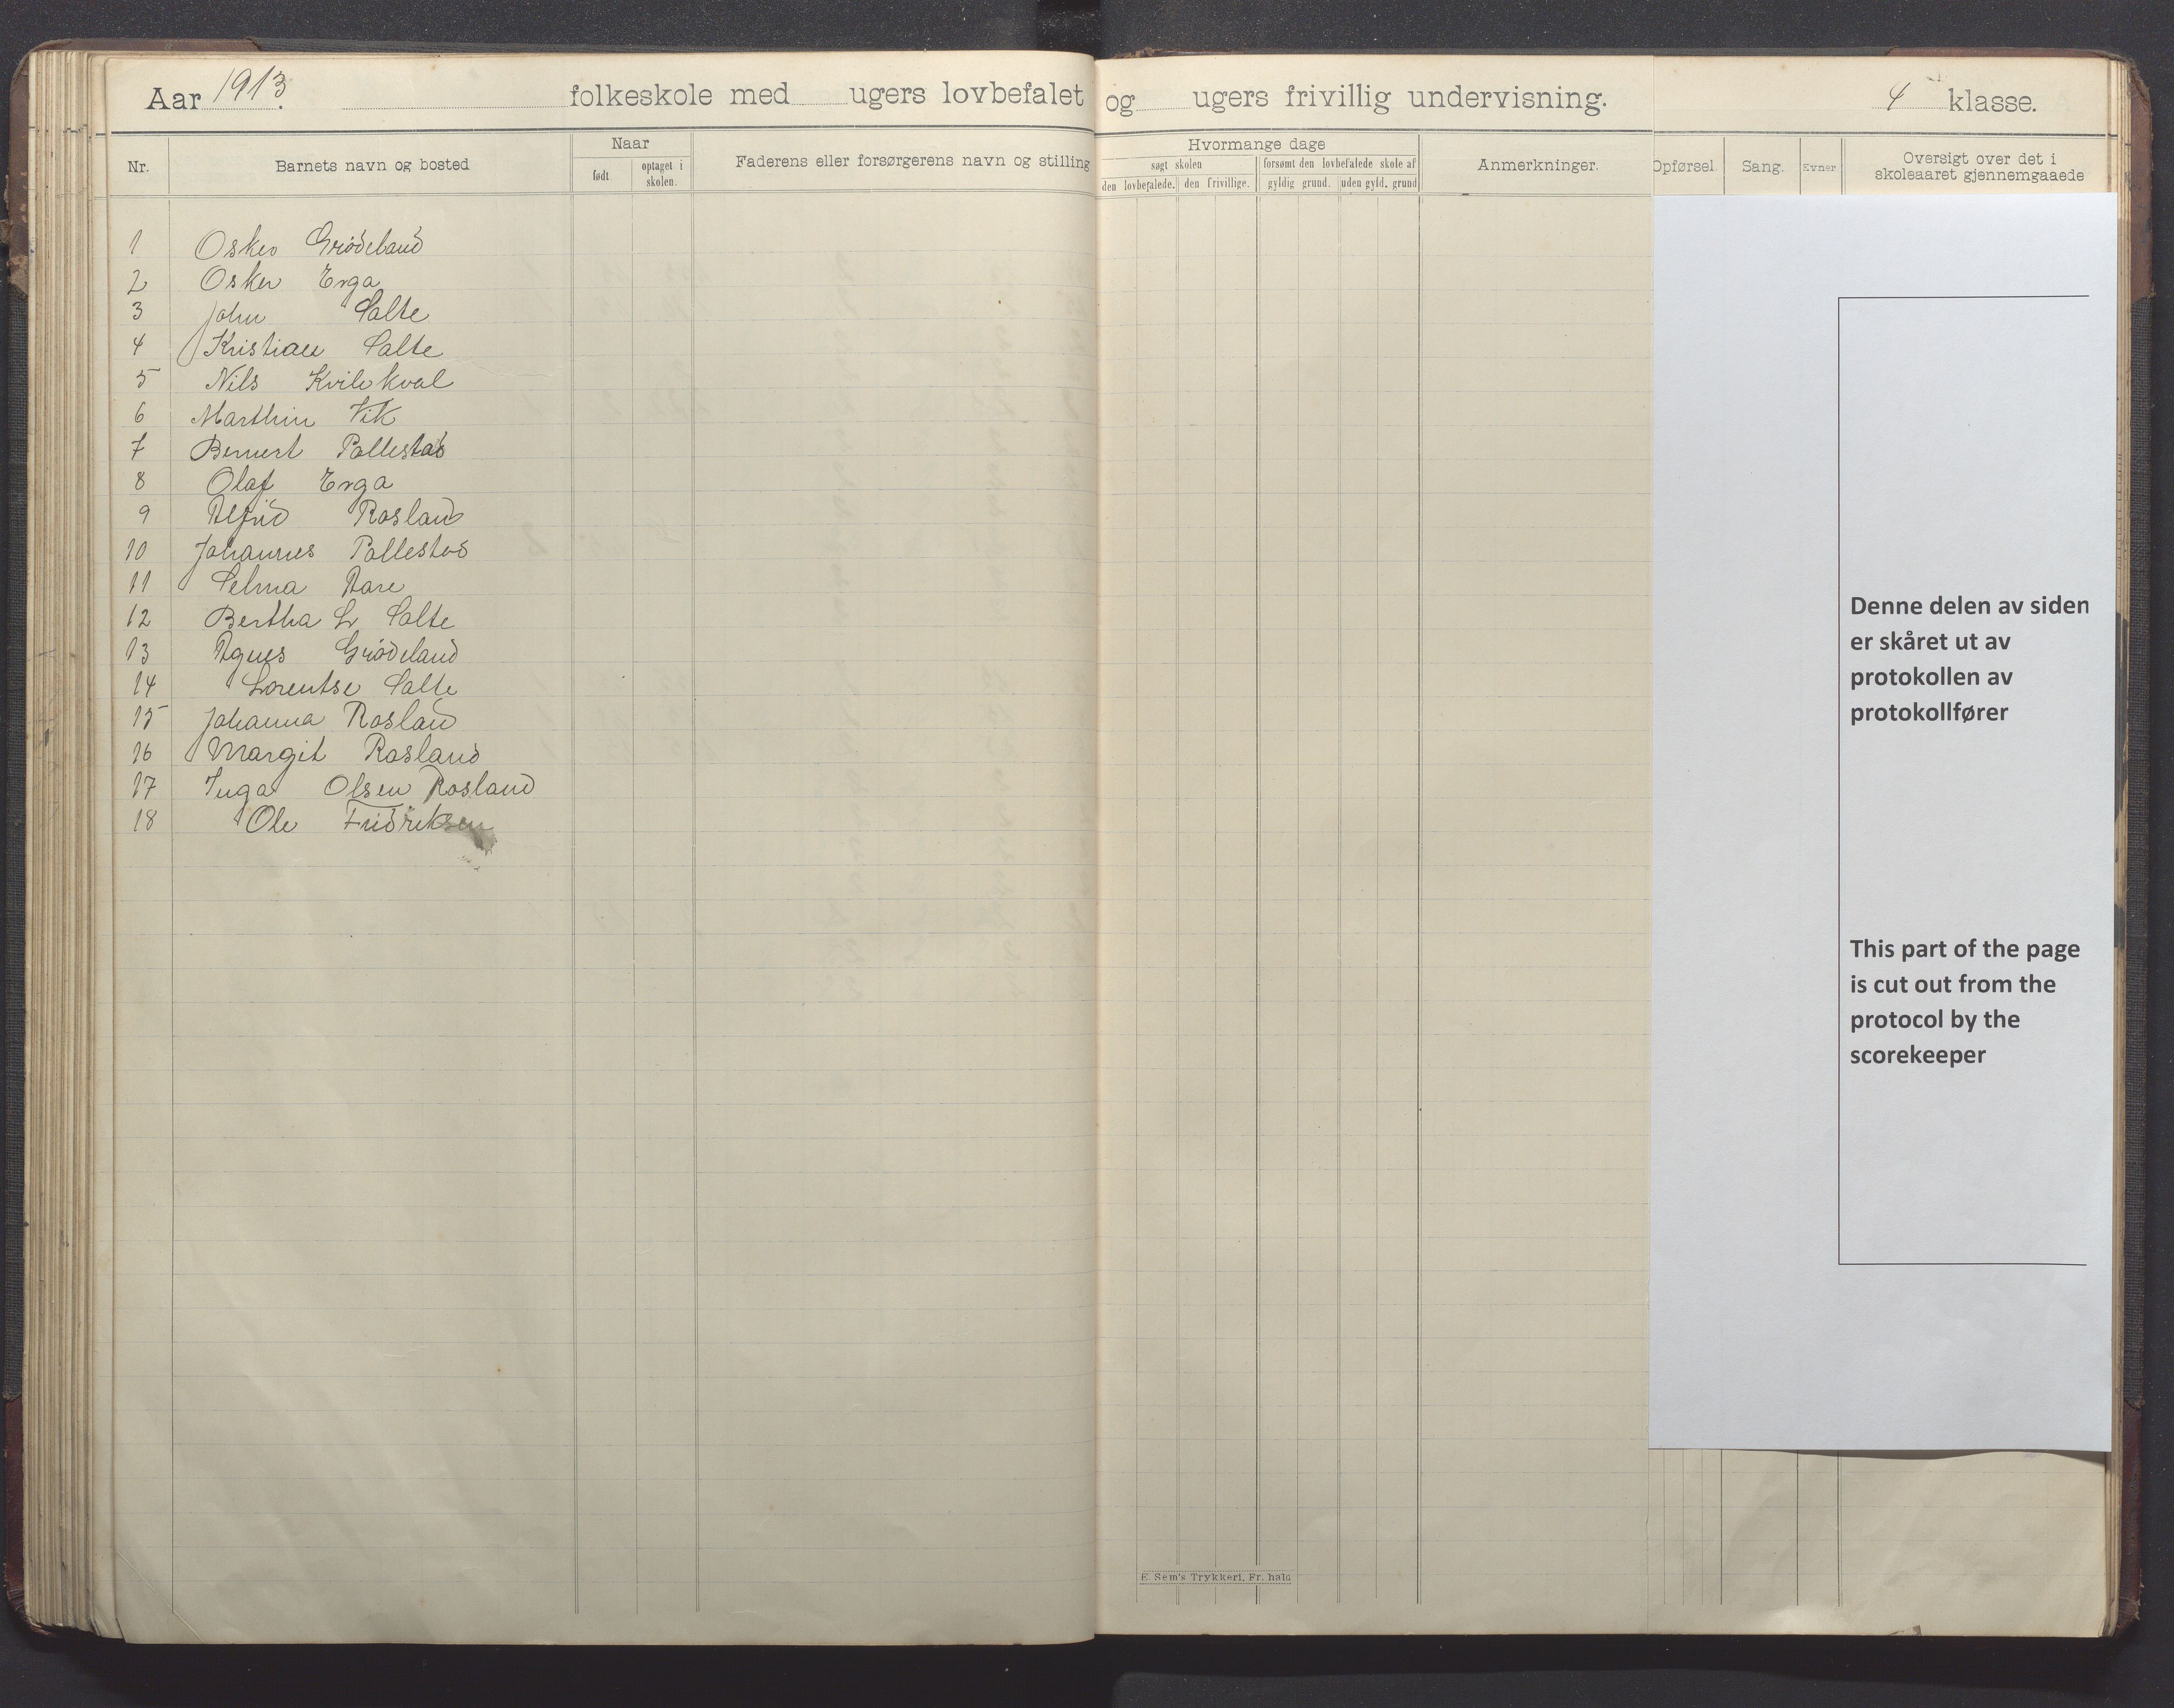 Aar 1913. folkeskole med ugers lovbefalet og ugers frivillig undervisning. 4 klasse.
Nr.
Barnets navn og bosted
Naar
født
optaget i skolen.
Faderens eller forsørgerens navn og stilling
Hvormange dage
søgt skolen
forsømt den lovbefalede skole af
den lovbefalede. den frivillige. gyldig grund. uden gyld. grund
Anmerkninger.
Opførsel.
Sang.
Evner
Oversigt over det i
skoleaaret gjennemgaaede
1 Osker Grødeland
2 Osker Erga
3 John Salte
4 Kristian Salte
5 Nils Kvilekval
6 Marthin Vik
7 Berner Pollestad
8 Olaf Erga
9 Alfrid Rosland
10 Johannes Pollestad
11 Selma Aare
12 Bertha L Salte
13 Agnes Grødeland
14 Lorentse Salte
15 Johanna Rosland
16 Margit Rosland
17 Inga Olsen Rosland
18 Ole Fridriksen
Denne delen av siden
er skåret ut av
protokollen av
protokollfører
This part of the page
is cut out from the
protocol by the
scorekeeper
E. Sem's Trykkeri, Fr. hald